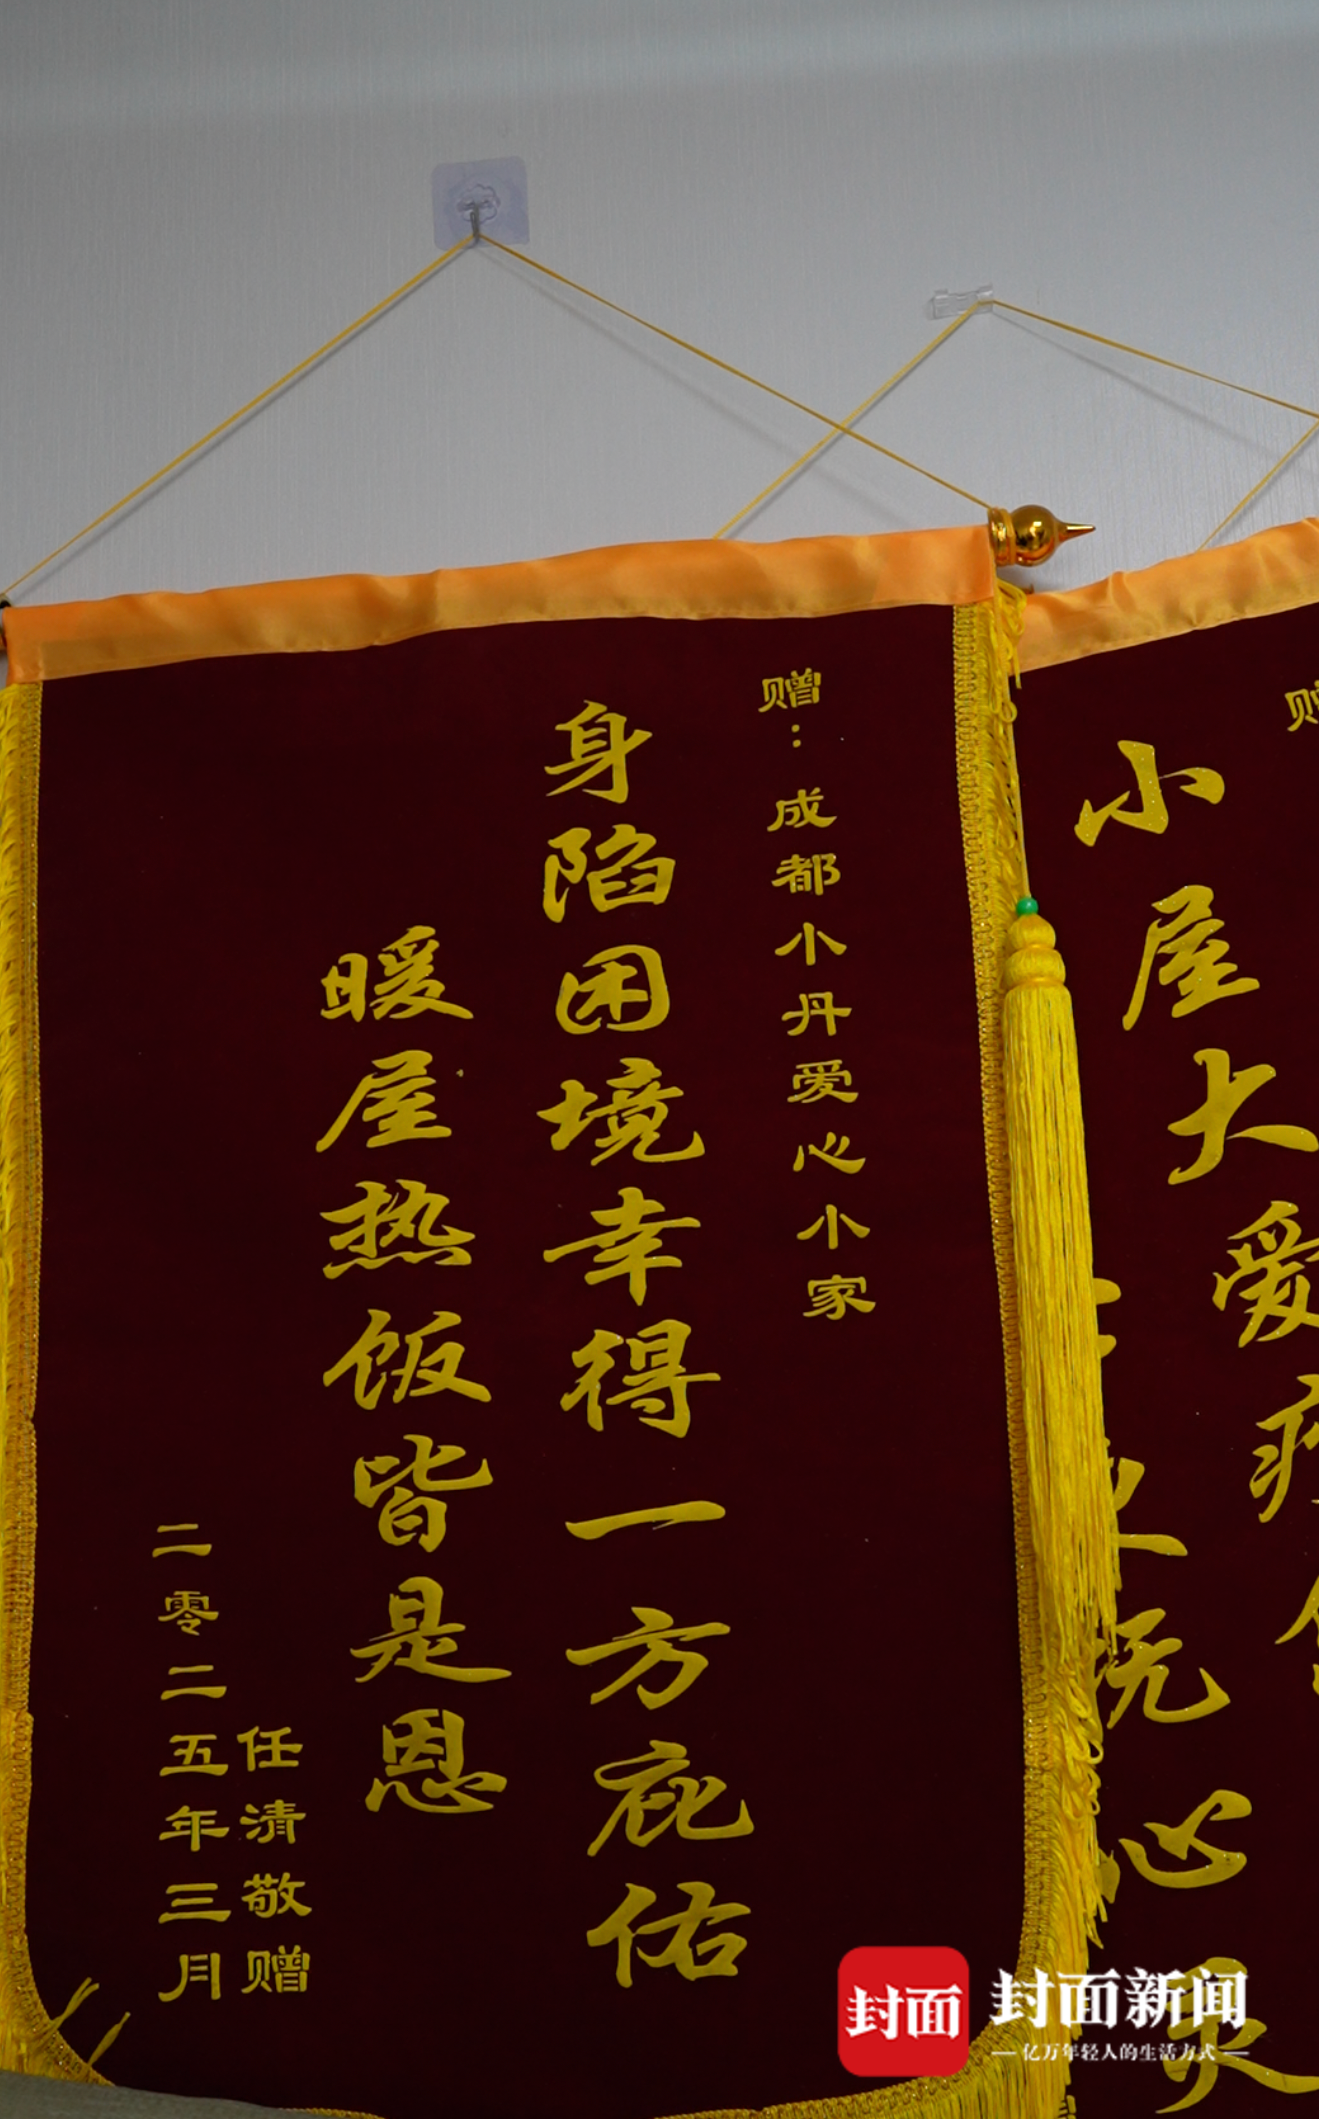 赠：成都小丹爱心小家
身陷困境幸得一方庇佑
暖屋热饭皆是恩
任清敬赠
二零二五年三月
赠
小屋大爱
抚心灵
封面
封面新闻
亿万年轻人的生活方式